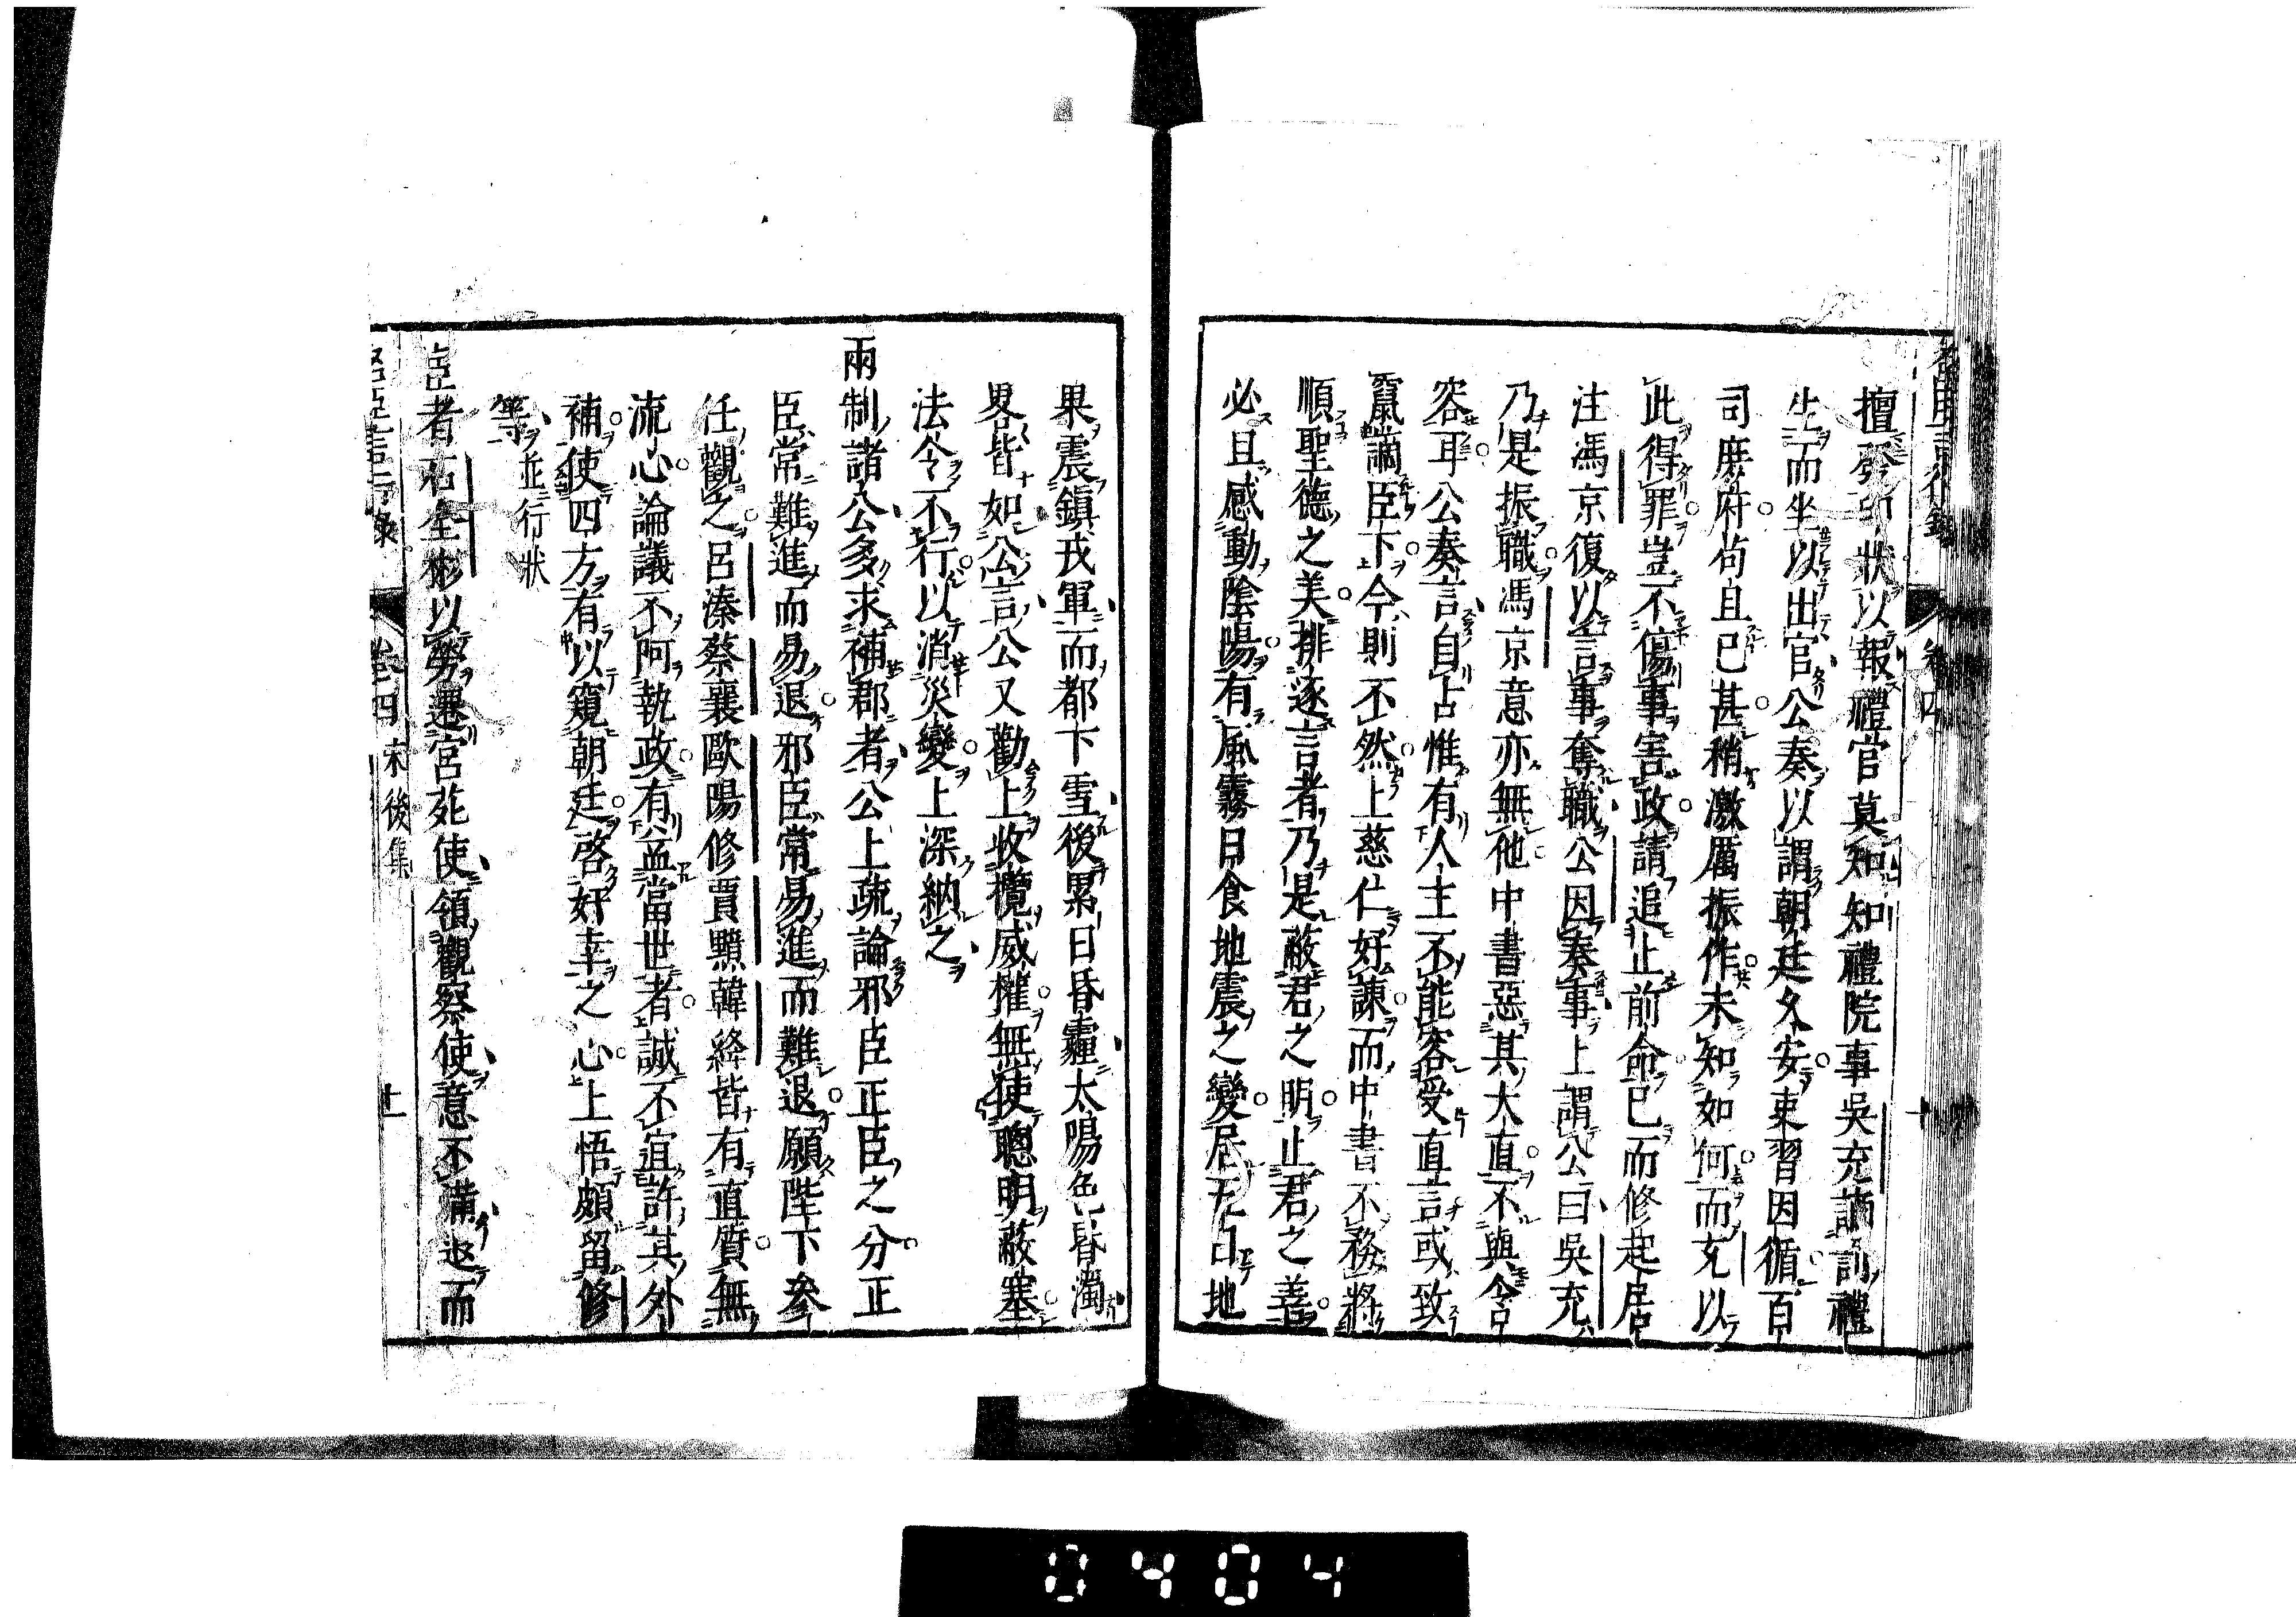 擅發印狀以報禮官莫知知禮院事吳充謫罰禮
生而坐以出官公奏以謂朝廷久安吏習因循百
司庶府苟且已甚稍激厲振作未知如何而充以
此得罪豈不傷事害政請追止前命已而修起居
注馮京復以言事奪職公因奏事上謂公曰吳充
乃是振職馮京意亦無他中書惡其大直不與含
容耳公奏言自占惟有人主不能容受直言或致
竄謫臣下今則不然上慈仁好諫而中書不務將
順聖德之美排逐言者乃是蔽君之明止君之善
必且感動陰陽有風霧日食地震之變居无日地
果震鎮戎軍而都下雪後累日昏霾太陽色昏濁
畧皆如公言公又勸上收攬威權無使聰明蔽塞
法令不行以消災變上深納之
兩制諸公多求補郡者公上疏論邪臣正臣之分正
臣常難進而易退邪臣常易進而難退願陛下參
任觀之呂溱蔡襄歐陽修賈黯韓絳皆有直質無
流心論議不阿執政有益當世者誠不宜許其外
補使四方有以窺朝廷啓奸幸之心上悟頗留修
等並行狀
臣者石全彬以勞遷宮苑使領觀察使意不滿退而
名臣言行錄 卷四 宋後集 十一